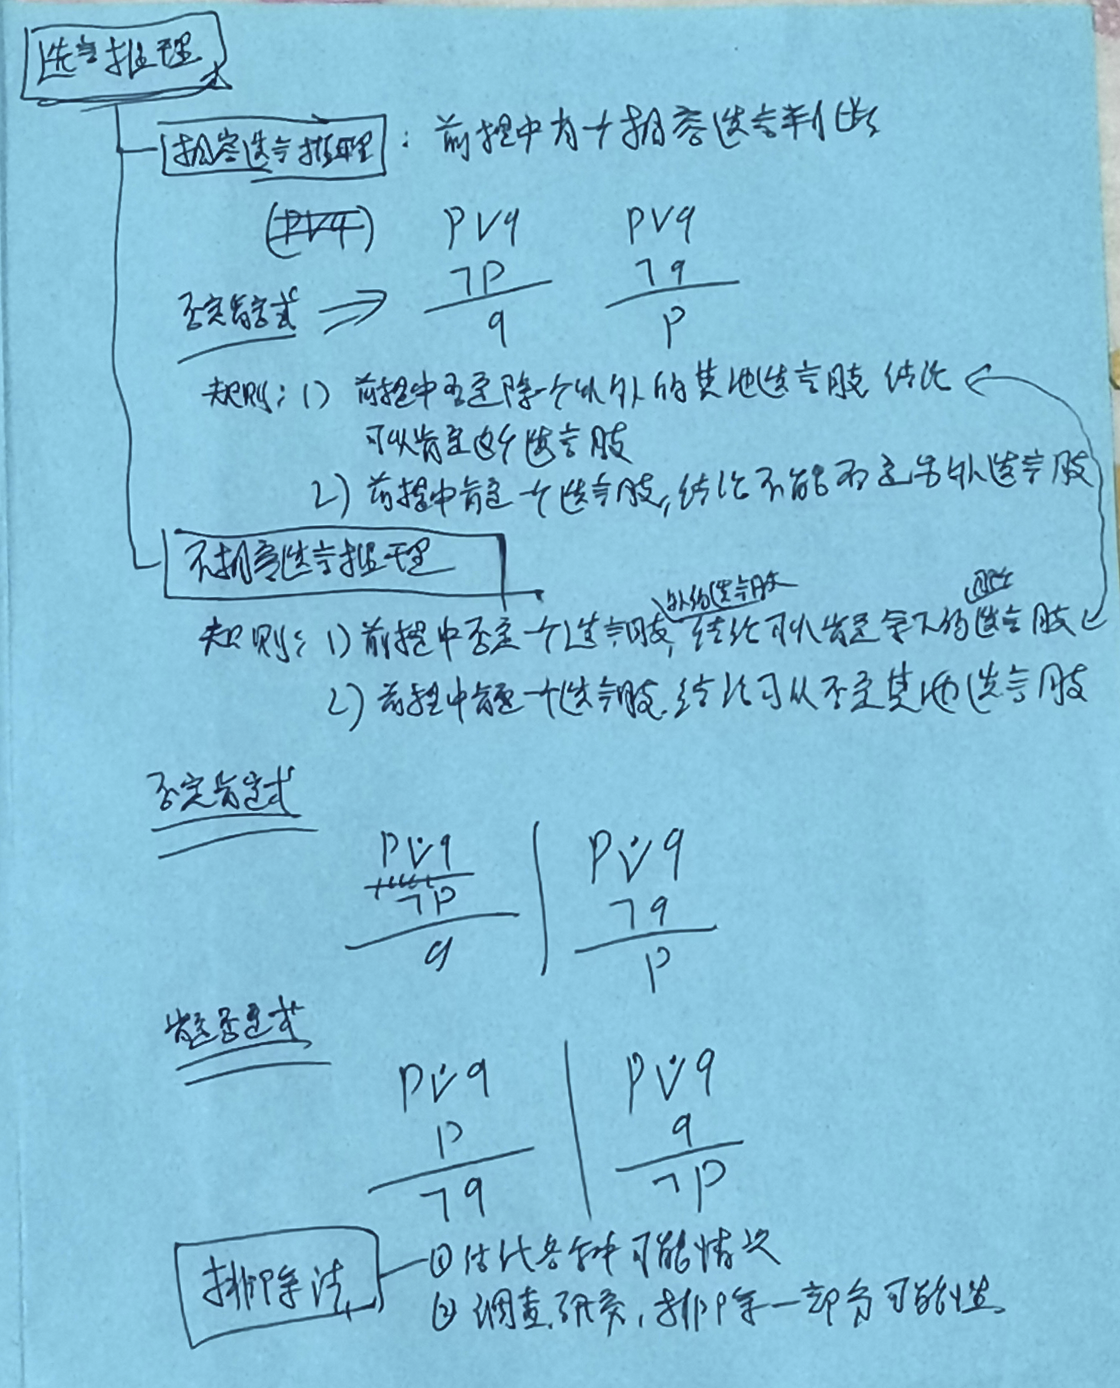 选言推理
相容选言推理：前提中有一个相容选言判断
(p∨q) p∨q p∨q
¬p ¬q
否定肯定式 ⇒ q p
规则：1) 前提中否定除一个以外的其他选言肢 结论
可以肯定这个选言肢
2) 前提中肯定一个选言肢，结论不能否定另外选言肢
不相容选言推理
以外的选言肢
规则：1) 前提中否定一个选言肢，结论可以肯定余下的选言肢
2) 前提中肯定一个选言肢，结论可以否定其他选言肢
否定肯定式
p∨̇q p∨̇q
¬p ¬q
q p
肯定否定式
p∨̇q p∨̇q
p q
¬q ¬p
排除法 ① 各种可能情况
② 调查研究，排除一部分可能性